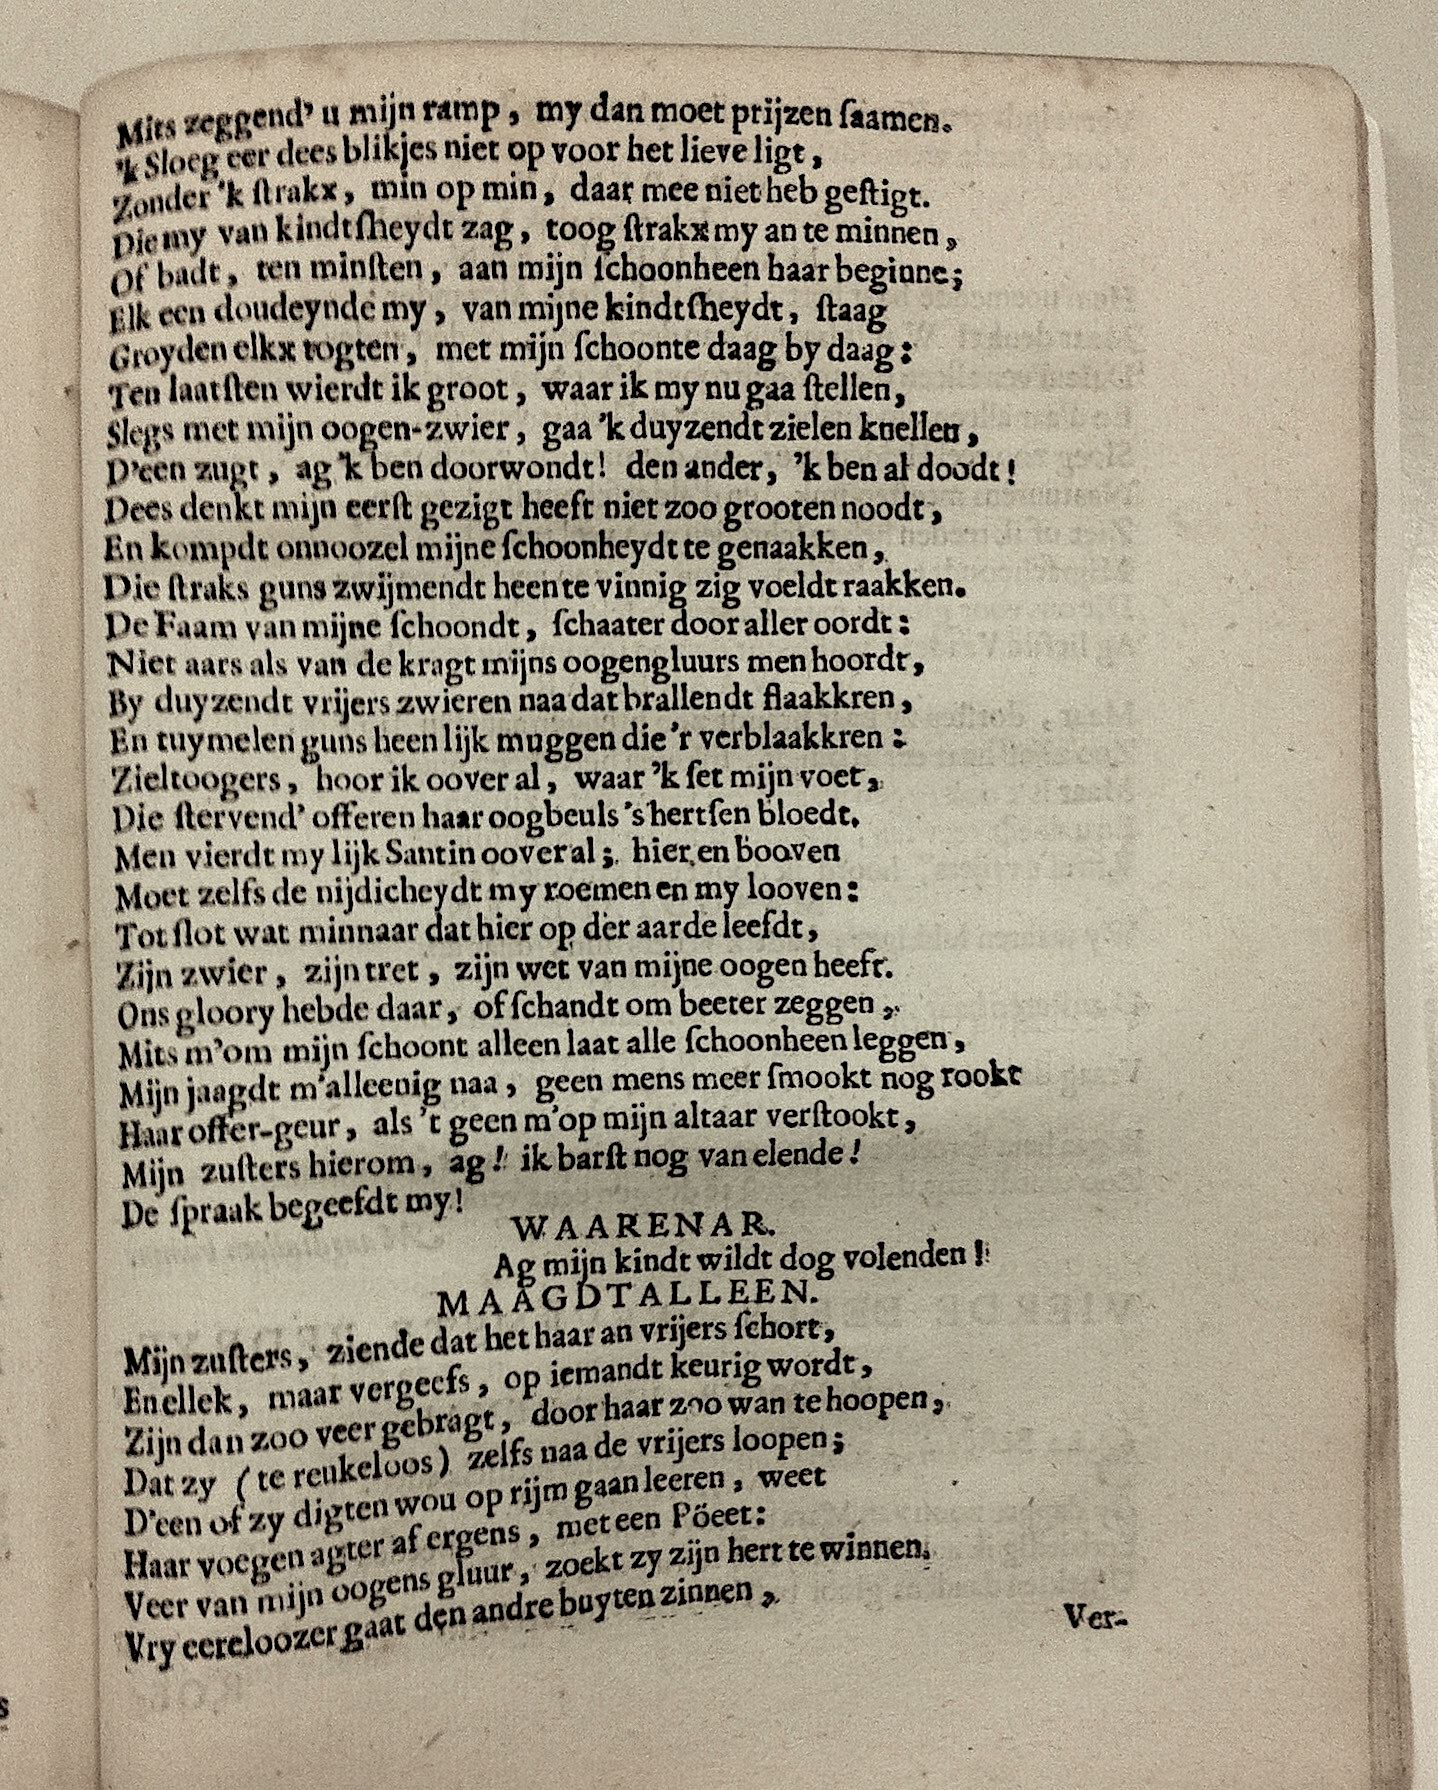 Mits zeggend' u mijn ramp, my dan moet prijzen ſaamen.
'k Sloeg eer dees blikjes niet op voor het lieve ligt,
Zonder 'k ſtrakx, min op min, daar mee niet heb geſtigt.
Die my van kindtſheydt zag, toog ſtrakx my an te minnen,
Of badt, ten minſten, aan mijn ſchoonheen haar beginne;
Elk een doudeynde my, van mijne kindtſheydt, ſtaag
Groyden elkx togten, met mijn ſchoonte daag by daag:
Ten laatſten wierdt ik groot, waar ik my nu gaa ſtellen,
Slegs met mijn oogen-zwier, gaa 'k duyzendt zielen knellen,
D'een zugt, ag 'k ben doorwondt! den ander, 'k ben al doodt!
Dees denkt mijn eerſt gezigt heeft niet zoo grooten noodt,
En kompdt onnoozel mijne ſchoonheydt te genaakken,
Die ſtraks guns zwijmendt heen te vinnig zig voeldt raakken.
De Faam van mijne ſchoondt, ſchaater door aller oordt:
Niet aars als van de kragt mijns oogengluurs men hoordt,
By duyzendt vrijers zwieren naa dat brallendt flaakkren,
En tuymelen guns heen lijk muggen die 'r verblaakkren:
Zieltoogers, hoor ik oover al, waar 'k ſet mijn voet,
Die ſtervend' offeren haar oogbeuls 's hertſen bloedt.
Men vierdt my lijk Santin ooveral; hier en booven
Moet zelfs de nijdicheydt my roemen en my looven:
Tot ſlot wat minnaar dat hier op der aarde leefdt,
Zijn zwier, zijn tret, zijn wet van mijne oogen heeft.
Ons gloory hebde daar, of ſchandt om beeter zeggen,
Mits m'om mijn ſchoont alleen laat alle ſchoonheen leggen,
Mijn jaagdt m'alleenig naa, geen mens meer ſmookt nog rookt
Haar offer-geur, als 't geen m'op mijn altaar verſtookt,
Mijn zuſters hierom, ag! ik barſt nog van elende!
De ſpraak begeefdt my!
WAARENAR.
Ag mijn kindt wildt dog volenden!
MAAGDTALLEEN.
Mijn zuſters, ziende dat het haar an vrijers ſchort,
En ellek, maar vergeefs, op iemandt keurig wordt,
Zijn dan zoo veer gebragt, door haar zoo wan te hoopen,
Dat zy (te reukeloos) zelfs naa de vrijers loopen;
D'een of zy digten wou op rijm gaan leeren, weet
Haar voegen agter af ergens, met een Pöeet:
Veer van mijn oogens gluur, zoekt zy zijn hert te winnen.
Vry eereloozer gaat den andre buyten zinnen,
Ver-